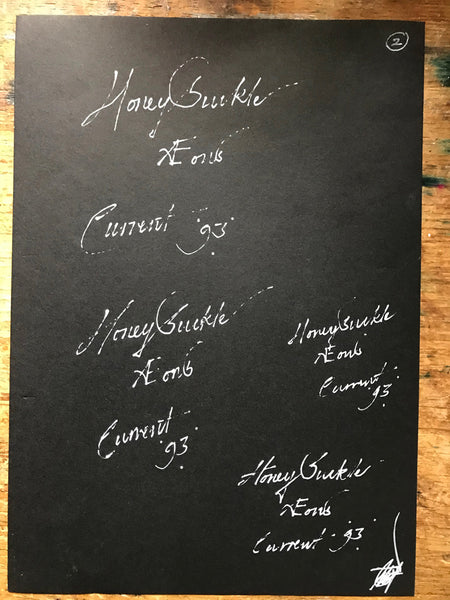 2
HoneySuckle
Æons
Current 93
HoneySuckle
Æons
Current
93
HoneySuckle
Æons
Current
93
HoneySuckle
Æons
Current 93